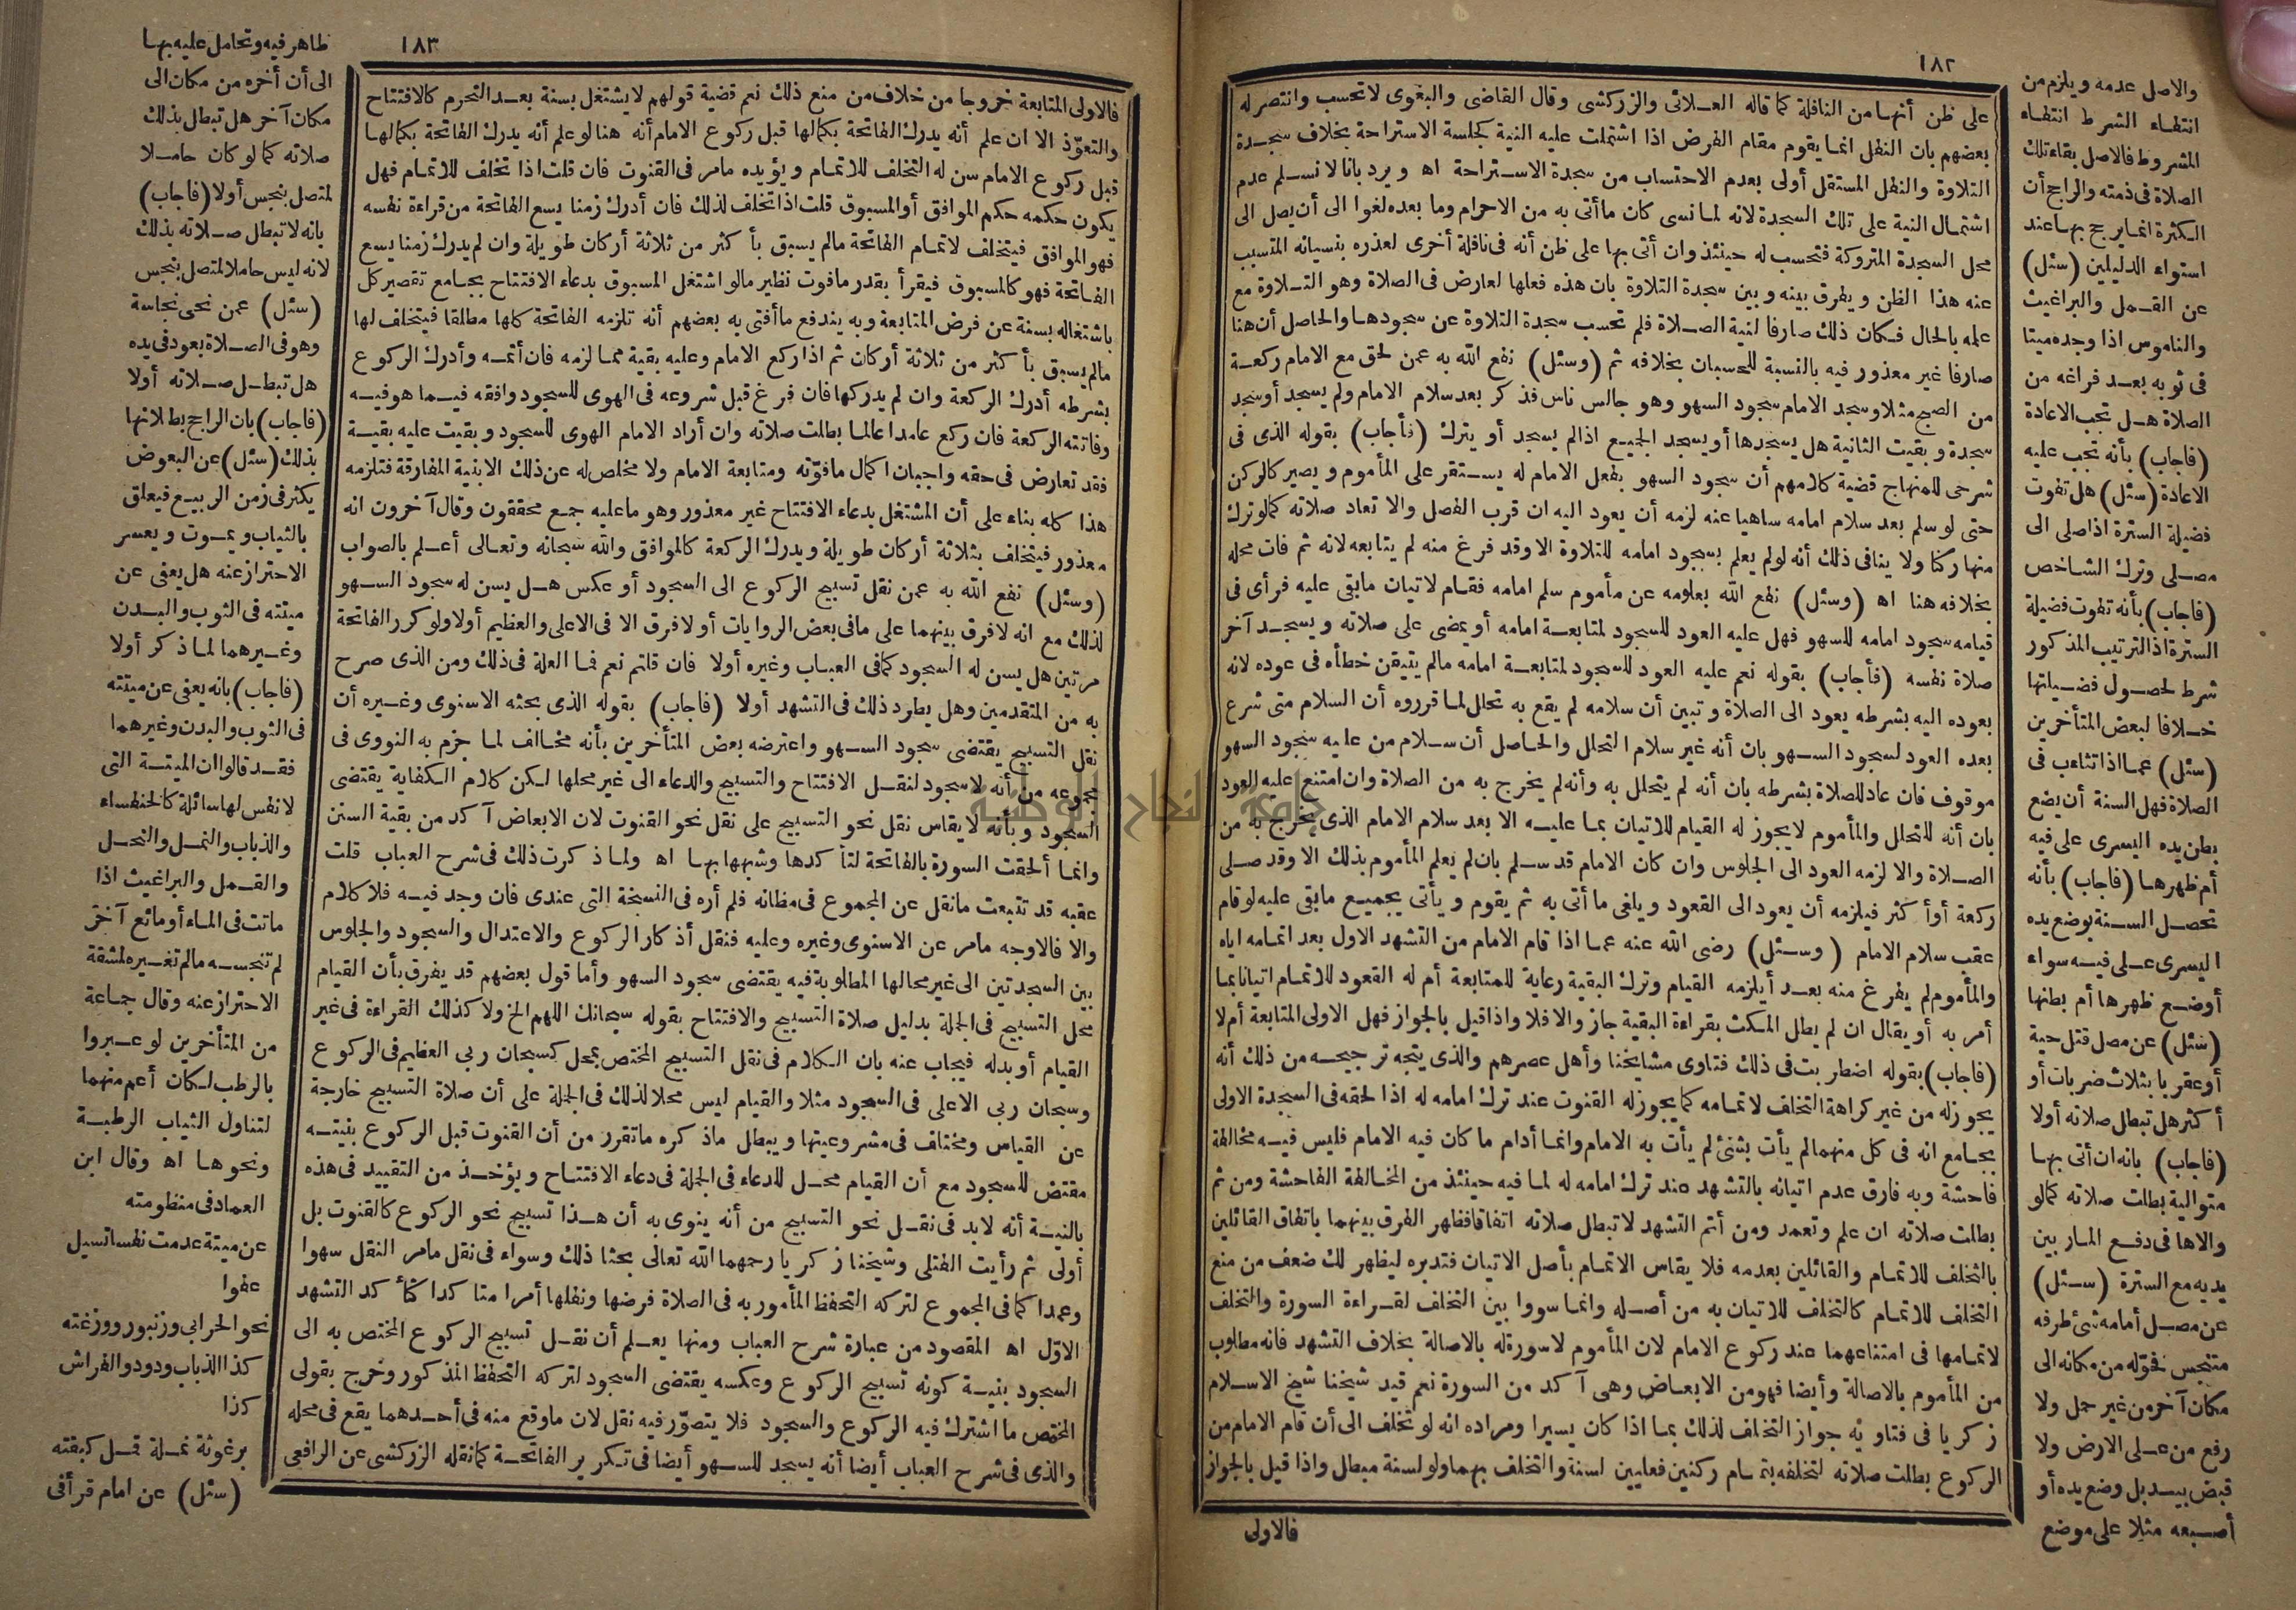 ١٨٢
على ظن أنها من النافلة كما قاله العلائى والزركشى وقال القاضى والبغوى لا تحسب وانتصر له
بعضهم بان النفل انما يقوم مقام الفرض اذا اشتملت عليه النية كجلسة الاستراحة بخلاف سجدة
التلاوة والنفل المستقل أولى بعدم الاحتساب من سجدة الاستراحة اه ويرد بانا لا نسلم عدم
اشتمال النية على تلك السجدة لانه لما نسى كان ما أتى به من الاحرام وما بعده لغوا الى أن يصل الى
محل السجدة المتروكة فتحسب له حينئذ وان أتى بها على ظن أنه فى نافلة أخرى لعذره بنسيانه المتسبب
عنه هذا الظن ويفرق بينه وبين سجدة التلاوة بان هذه فعلها لعارض فى الصلاة وهو التلاوة مع
علمه بالحال فكان ذلك صارفا لنية الصلاة فلم تحسب سجدة التلاوة عن سجودها والحاصل أن هنا
صارفا غير معذور فيه بالنسبة للحسبان بخلافه ثم (وسئل) نفع الله به عمن لحق مع الامام ركعة
من الصبح مثلا وسجد الامام سجود السهو وهو جالس ناس فذكر بعد سلام الامام ولم يسجد أو سجد
سجدة وبقيت الثانية هل يسجدها أو يسجد الجميع اذا لم يسجد أو يترك (فأجاب) بقوله الذى فى
شرحى للمنهاج قضية كلامهم أن سجود السهو بفعل الامام له يستقر على المأموم ويصير كالركن
حتى لو سلم بعد سلام امامه ساهيا عنه لزمه أن يعود اليه ان قرب الفصل والا تعاد صلاته كما لو ترك
منها ركنا ولا ينافى ذلك أنه لو لم يعلم بسجود امامه للتلاوة الا وقد فرغ منه لم يتابعه لانه ثم فات محله
بخلافه هنا اه (وسئل) نفع الله بعلومه عن مأموم سلم امامه فقام لاتيان ما بقى عليه فرأى فى
قيامه سجود امامه للسهو فهل عليه العود للسجود لمتابعة امامه أو يمضى على صلاته ويسجد آخر
صلاة نفسه (فأجاب) بقوله نعم عليه العود للسجود لمتابعة امامه ما لم يتيقن خطأه فى عوده لانه
بعوده اليه بشرطه يعود الى الصلاة وتبين أن سلامه لم يقع به تحلل لما قرروه أن السلام متى شرع
بعده العود لسجود السهو بان أنه غير سلام التحلل والحاصل أن سلام من عليه سجود السهو
موقوف فان عاد للصلاة بشرطه بان أنه لم يتحلل به وأنه لم يخرج به من الصلاة وان امتنع عليه العود
بان أنه للتحلل والمأموم لا يجوز له القيام للاتيان بما عليه الا بعد سلام الامام الذى يخرج به من
الصلاة والا لزمه العود الى الجلوس وان كان الامام قد سلم بان لم يعلم المأموم بذلك الا وقد صلى
ركعة أو أكثر فيلزمه أن يعود الى القعود ويلغى ما أتى به ثم يقوم ويأتى بجميع ما بقى عليه لو قام
عقب سلام الامام (وسئل) رضى الله عنه عما اذا قام الامام من التشهد الاول بعد اتمامه اياه
والمأموم لم يفرغ منه بعد أيلزمه القيام وترك البقية رعاية للمتابعة أم له القعود للاتمام اتيانا بما
أمر به أو يقال ان لم يطل المكث بقراءة البقية جاز والا فلا واذا قيل بالجواز فهل الاولى المتابعة أم لا
(فاجاب) بقوله اضطربت فى ذلك فتاوى مشايخنا وأهل عصرهم والذى يتجه ترجيحه من ذلك أنه
يجوز له من غير كراهة التخلف لاتمامه كما يجوز له القنوت عند ترك امامه له اذا لحقه فى السجدة الاولى
بجامع انه فى كل منهما لم يأت بشئ لم يأت به الامام وانما أدام ما كان فيه الامام فليس فيه مخالفة
فاحشة وبه فارق عدم اتيانه بالتشهد عند ترك امامه له لما فيه حينئذ من المخالفة الفاحشة ومن ثم
بطلت صلاته ان علم وتعمد ومن أتم التشهد لا تبطل صلاته اتفاقا فظهر الفرق بينهما باتفاق القائلين
بالتخلف للاتمام والقائلين بعدمه فلا يقاس الاتمام بأصل الاتيان فتدبره ليظهر لك ضعف من منع
التخلف للاتمام كالتخلف للاتيان به من أصله وانما سووا بين التخلف لقراءة السورة والتخلف
لاتمامها فى امتناعهما عند ركوع الامام لان المأموم لا سورة له بالاصالة بخلاف التشهد فانه مطلوب
من المأموم بالاصالة وأيضا فهو من الابعاض وهى آكد من السورة نعم قيد شيخنا شيخ الاسلام
زكريا فى فتاويه جواز التخلف لذلك بما اذا كان يسيرا ومراده انه لو تخلف الى أن قام الامام من
الركوع بطلت صلاته لتخلفه بتمام ركنين فعليين لسنة والتخلف بهما ولو لسنة مبطل واذا قيل بالجواز
فالاولى
والاصل عدمه ويلزم من
انتفاء الشرط انتفاء
المشروط فالاصل بقاء تلك
الصلاة فى ذمته والراجح أن
الكثرة انما يرجح بها عند
استواء الدليلين (سئل)
عن القمل والبراغيث
والناموس اذا وجده ميتا
فى ثوبه بعد فراغه من
الصلاة هل تجب الاعادة
(فاجاب) بأنه تجب عليه
الاعادة (سئل) هل تفوت
فضيلة السترة اذا صلى الى
مصلى وترك الشاخص
(فاجاب) بأنه تفوت فضيلة
السترة اذ الترتيب المذكور
شرط لحصول فضيلتها
خلافا لبعض المتأخرين
(سئل) عما اذا تثاءب فى
الصلاة فهل السنة أن يضع
بطن يده اليسرى على فيه
أم ظهرها (فاجاب) بأنه
تحصل السنة بوضع يده
اليسرى على فيه سواء
أوضع ظهرها أم بطنها
(سئل) عن مصل قتل حية
أو عقربا بثلاث ضربات أو
أكثر هل تبطل صلاته أولا
(فاجاب) بانه ان أتى بها
متوالية بطلت صلاته كما لو
والاها فى دفع المار بين
يديه مع السترة (سئل)
عن مصل أمامه شئ طرفه
متنجس فحوله من مكانه الى
مكان آخر من غير حمل ولا
رفع من على الارض ولا
قبض بيد بل وضع يده أو
أصبعه مثلا على موضع
١٨٣
فالاولى المتابعة خروجا من خلاف من منع ذلك نعم قضية قولهم لا يشتغل بسنة بعد التحرم كالافتتاح
والتعوّذ الا ان علم أنه يدرك الفاتحة بكمالها قبل ركوع الامام أنه هنا لو علم أنه يدرك الفاتحة بكمالها
قبل ركوع الامام سن له التخلف للاتمام ويؤيده ما مر فى القنوت فان قلت اذا تخلف للاتمام فهل
يكون حكمه حكم الموافق أو المسبوق قلت اذا تخلف لذلك فان أدرك زمنا يسع الفاتحة من قراءة نفسه
فهو الموافق فيتخلف لاتمام الفاتحة ما لم يسبق بأكثر من ثلاثة أركان طويلة وان لم يدرك زمنا يسع
الفاتحة فهو كالمسبوق فيقرأ بقدر ما فوت نظير ما لو اشتغل المسبوق بدعاء الافتتاح بجامع تقصير كل
باشتغاله بسنة عن فرض المتابعة وبه يندفع ما أفتى به بعضهم أنه تلزمه الفاتحة كلها مطلقا فيتخلف لها
ما لم يسبق بأكثر من ثلاثة أركان ثم اذا ركع الامام وعليه بقية مما لزمه فان أتمه وأدرك الركوع
بشرطه أدرك الركعة وان لم يدركها فان فرغ قبل شروعه فى الهوى للسجود وافقه فيما هو فيه
وفاتته الركعة فان ركع عامدا عالما بطلت صلاته وان أراد الامام الهوى للسجود وبقيت عليه بقية
فقد تعارض فى حقه واجبان اكمال ما فوّته ومتابعة الامام ولا مخلص له عن ذلك الا بنية المفارقة فتلزمه
هذا كله بناء على أن المشتغل بدعاء الافتتاح غير معذور وهو ما عليه جمع محققون وقال آخرون انه
معذور فيتخلف بثلاثة أركان طويلة ويدرك الركعة كالموافق والله سبحانه وتعالى أعلم بالصواب
(وسئل) نفع الله به عمن نقل تسبيح الركوع الى السجود أو عكس هل يسن له سجود السهو
لذلك مع انه لا فرق بينهما على ما فى بعض الروايات أو لا فرق الا فى الاعلى والعظيم أولا ولو كرر الفاتحة
مرتين هل يسن له السجود كما فى العباب وغيره أولا فان قلتم نعم فما العلة فى ذلك ومن الذى صرح
به من المتقدمين وهل يطرد ذلك فى التشهد أولا (فاجاب) بقوله الذى بحثه الاسنوى وغيره أن
نقل التسبيح يقتضى سجود السهو واعترضه بعض المتأخرين بأنه مخالف لما جزم به النووى فى
مجموعه من أنه لا سجود لنقل الافتتاح والتسبيح والدعاء الى غير محلها لكن كلام الكفاية يقتضى
السجود وبأنه لا يقاس نقل نحو التسبيح على نقل نحو القنوت لان الابعاض آكد من بقية السنن
وانما ألحقت السورة بالفاتحة لتأكدها وشبهها بها اه ولما ذكرت ذلك فى شرح العباب قلت
عقبه قد تتبعت ما نقل عن المجموع فى مظانه فلم أره فى النسخة التى عندى فان وجد فيه فلا كلام
والا فالاوجه ما مر عن الاسنوى وغيره وعليه فنقل أذكار الركوع والاعتدال والسجود والجلوس
بين السجدتين الى غير محالها المطلوبة فيه يقتضى سجود السهو وأما قول بعضهم قد يفرق بأن القيام
محل التسبيح فى الجملة بدليل صلاة التسبيح والافتتاح بقوله سبحانك اللهم الخ ولا كذلك القراءة فى غير
القيام أو بدله فيجاب عنه بان الكلام فى نقل التسبيح المختص بمحل كسبحان ربى العظيم فى الركوع
وسبحان ربى الاعلى فى السجود مثلا والقيام ليس محلا لذلك فى الجملة على أن صلاة التسبيح خارجة
عن القياس ومختلف فى مشروعيتها ويبطل ما ذكره ما تقرر من أن القنوت قبل الركوع بنيته
مقتض للسجود مع أن القيام محل للدعاء فى الجملة فى دعاء الافتتاح ويؤخذ من التقييد فى هذه
بالنية أنه لابد فى نقل نحو التسبيح من أنه ينوى به أن هذا تسبيح نحو الركوع كالقنوت بل
أولى ثم رأيت الفتى وشيخنا زكريا رحمهما الله تعالى بحثا ذلك وسواء فى نقل ما مر النقل سهوا
وعمدا كما فى المجموع لتركه التحفظ المأمور به فى الصلاة فرضها ونفلها أمرا متأكدا كتأكد التشهد
الاوّل اه المقصود من عبارة شرح العباب ومنها يعلم أن نقل تسبيح الركوع المختص به الى
السجود بنية كونه تسبيح الركوع وعكسه يقتضى السجود لتركه التحفظ المذكور وخرج بقولى
المختص ما اشترك فيه الركوع والسجود فلا يتصوّر فيه نقل لان ما وقع منه فى أحدهما يقع فى محله
والذى فى شرح العباب أيضا أنه يسجد للسهو أيضا فى تكرير الفاتحة كما نقله الزركشى عن الرافعى
ظاهر فيه وتحامل عليه بها
الى أن أخره من مكان الى
مكان آخر هل تبطل بذلك
صلاته كما لو كان حاملا
لمتصل بنجس أولا (فاجاب)
بانه لا تبطل صلاته بذلك
لانه ليس حاملا لمتصل بنجس
(سئل) عمن نحى نجاسة
وهو فى الصلاة بعود فى يده
هل تبطل صلاته أولا
(فاجاب) بان الراجح بطلانها
بذلك (سئل) عن البعوض
يكثر فى زمن الربيع فيعلق
بالثياب ويموت ويعسر
الاحتراز عنه هل يعفى عن
ميتته فى الثوب والبدن
وغيرهما لما ذكر أولا
(فاجاب) بانه يعفى عن ميتته
فى الثوب والبدن وغيرهما
فقد قالوا ان الميتة التى
لا نفس لها سائلة كالخنفساء
والذباب والنمل والنحل
والقمل والبراغيث اذا
ماتت فى الماء أو مائع آخر
لم تنجسه ما لم تغيره لمشقة
الاحتراز عنه وقال جماعة
من المتأخرين لو عبروا
بالرطب لكان أعم منهما
لتناول الثياب الرطبة
ونحوها اه وقال ابن
العماد فى منظومته
عن ميتة عدمت نفسا تسيل
عفوا
نحو الحرابى وزنبور ووزغته
كذا الذباب ودود والفراش
كذا
برغوثة نملة قمل كبقته
(سئل) عن امام قرأ فى
جامعة النجاح الوطنية